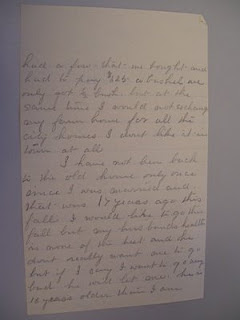 had a few that we bought and
had to pay $1.25 cts which we
only got 2 Qrts. but at the
same time I would not exchange
my farm home for all the
city homes I dont like it in
town at all
I have not been back
to the old home only once
since I was married and
that was 17 years ago this
fall I would like to go this
fall but my husbands health
is none of the best and he
dont really want me to go
but if I say I want to go my
he will let me, he is
18 years older than I am